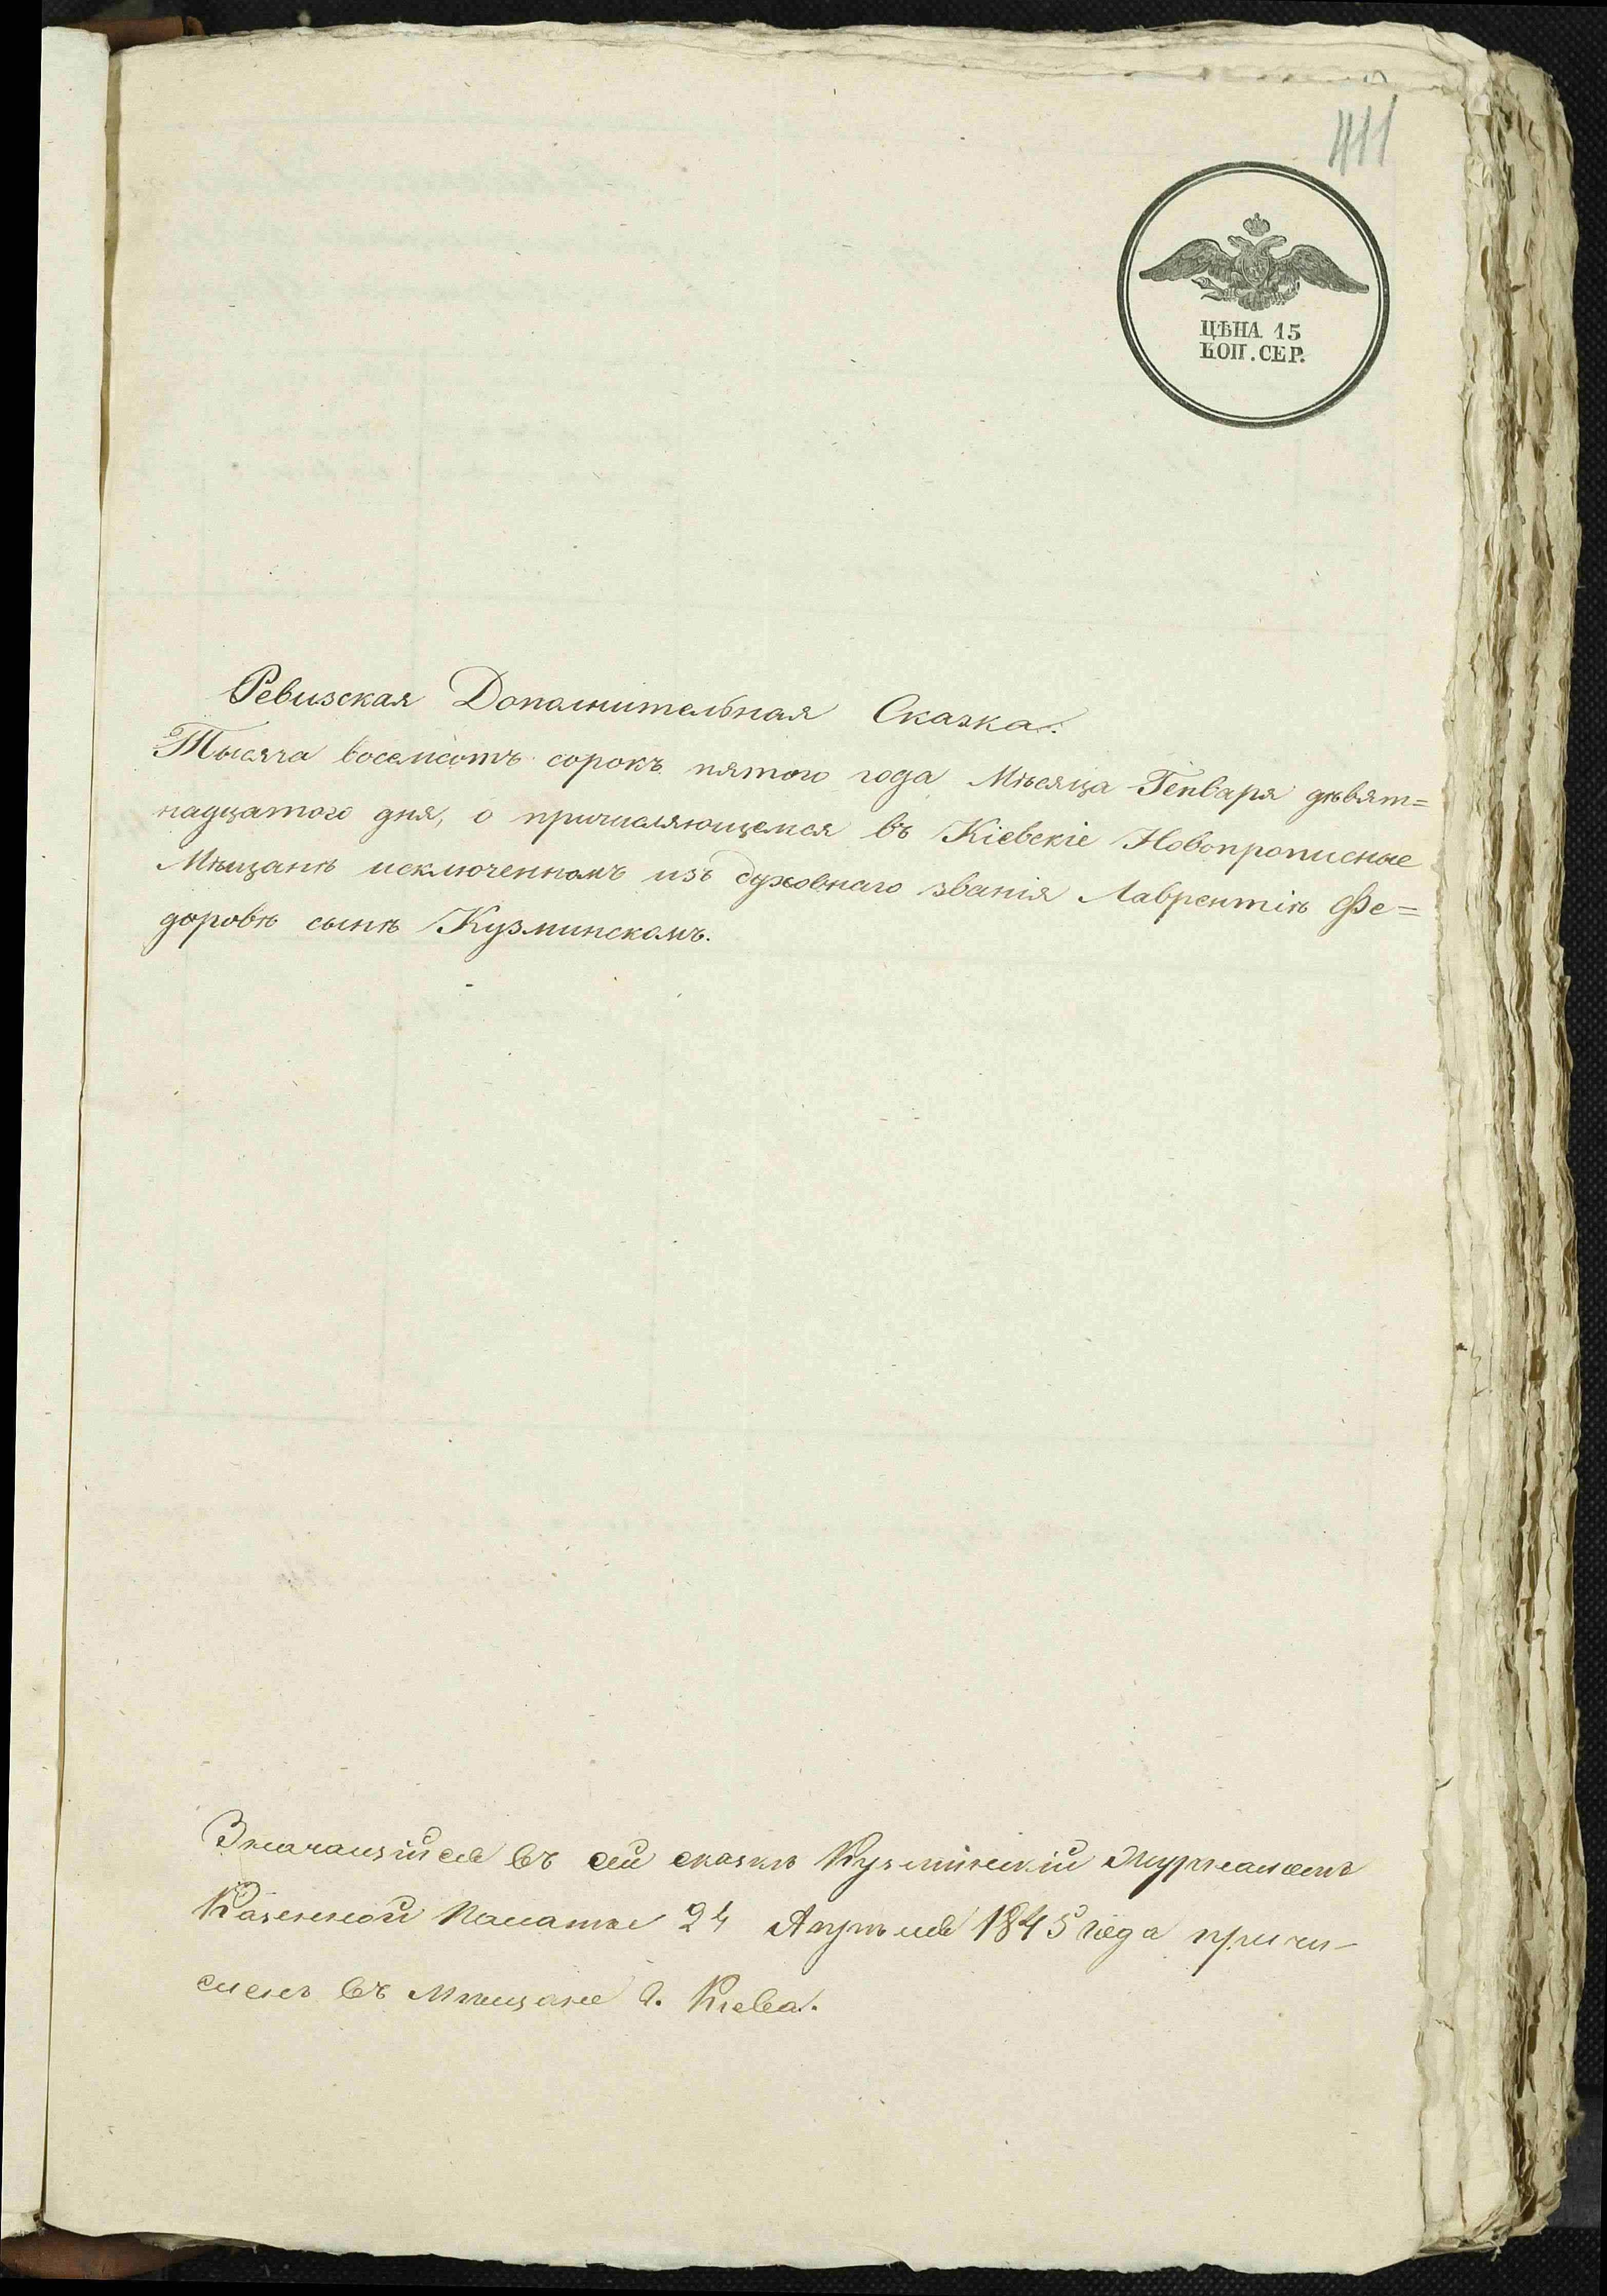 411
ЦѢНА 15
КОП. СЕР.
Ревизская Дополнительная Сказка.
Тысяча восемсотъ сорокъ пятого года Мѣсяца Генваря дѣвят=
надцатого дня, о причисляющемся въ Кіевскіе Новопрописные
Мѣщанѣ исключенномъ изъ духовнаго званія Лаврентіѣ Фе=
доровѣ сынѣ Кузминскомъ.
Значащійся въ сей сказкѣ Кузминскій Журналомъ
Казенной Палаты 24 Апрѣля 1845 года причи-
сленъ въ Мѣщане г. Кіева.